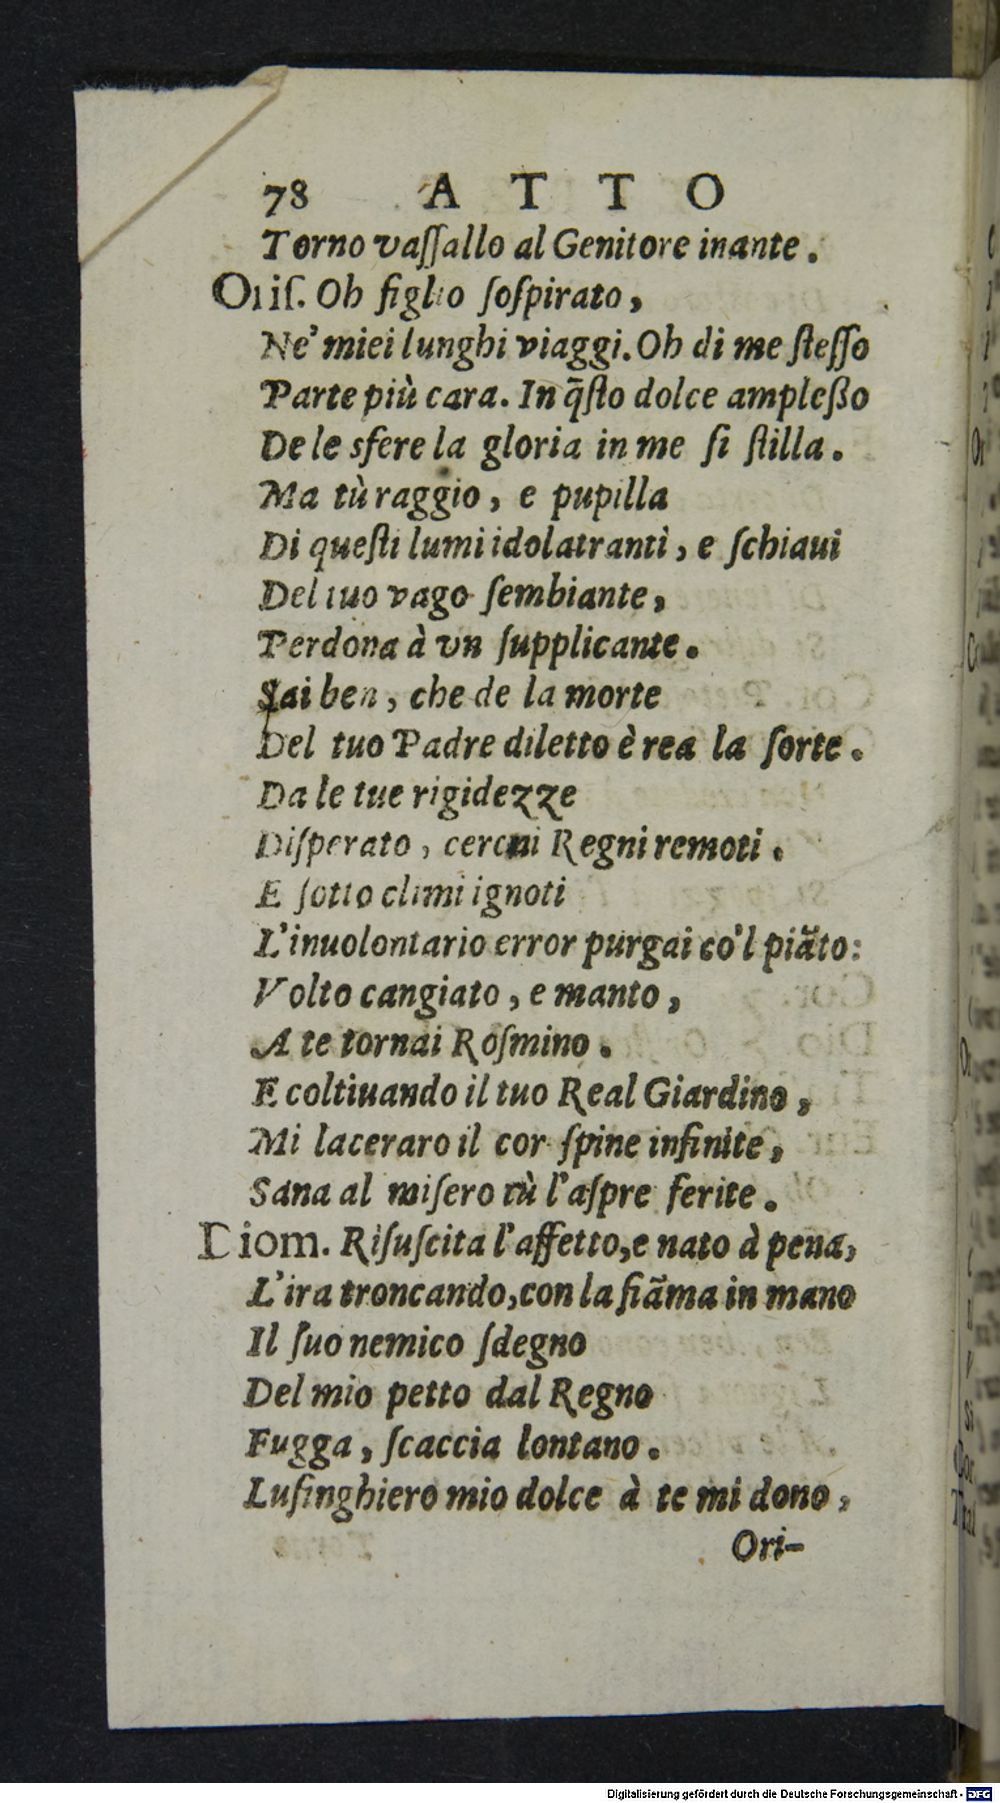 78 ATTO
Torno vaſſallo al Genitore inante.
Oriſ. Oh figlio ſoſpirato,
Ne' miei lunghi viaggi. Oh di me ſteſſo
Parte più cara. In q̃ſto dolce ampleßo
De le sfere la gloria in me ſi ſtilla.
Ma tù raggio, e pupilla
Di queſti lumi idolatranti, e ſchiaui
Del tuo vago ſembiante,
Perdona à vn ſupplicante.
Sai ben, che de la morte
Del tuo Padre diletto è rea la ſorte.
Da le tue rigidezze
Diſperato, cercai Regni remoti.
E ſotto climi ignoti
L'inuolontario error purgai co'l piãto:
Volto cangiato, e manto,
A te tornai Roſmino.
E coltiuando il tuo Real Giardino,
Mi laceraro il cor ſpine infinite,
Sana al miſero tù l'aſpre ferite.
Diom. Riſuſcita l'affetto, e nato à pena,
L'ira troncando, con la fiãma in mano
Il ſuo nemico ſdegno
Del mio petto dal Regno
Fugga, ſcaccia lontano.
Luſinghiero mio dolce à te mi dono,
Ori-
Digitalisierung gefördert durch die Deutsche Forschungsgemeinschaft - DFG